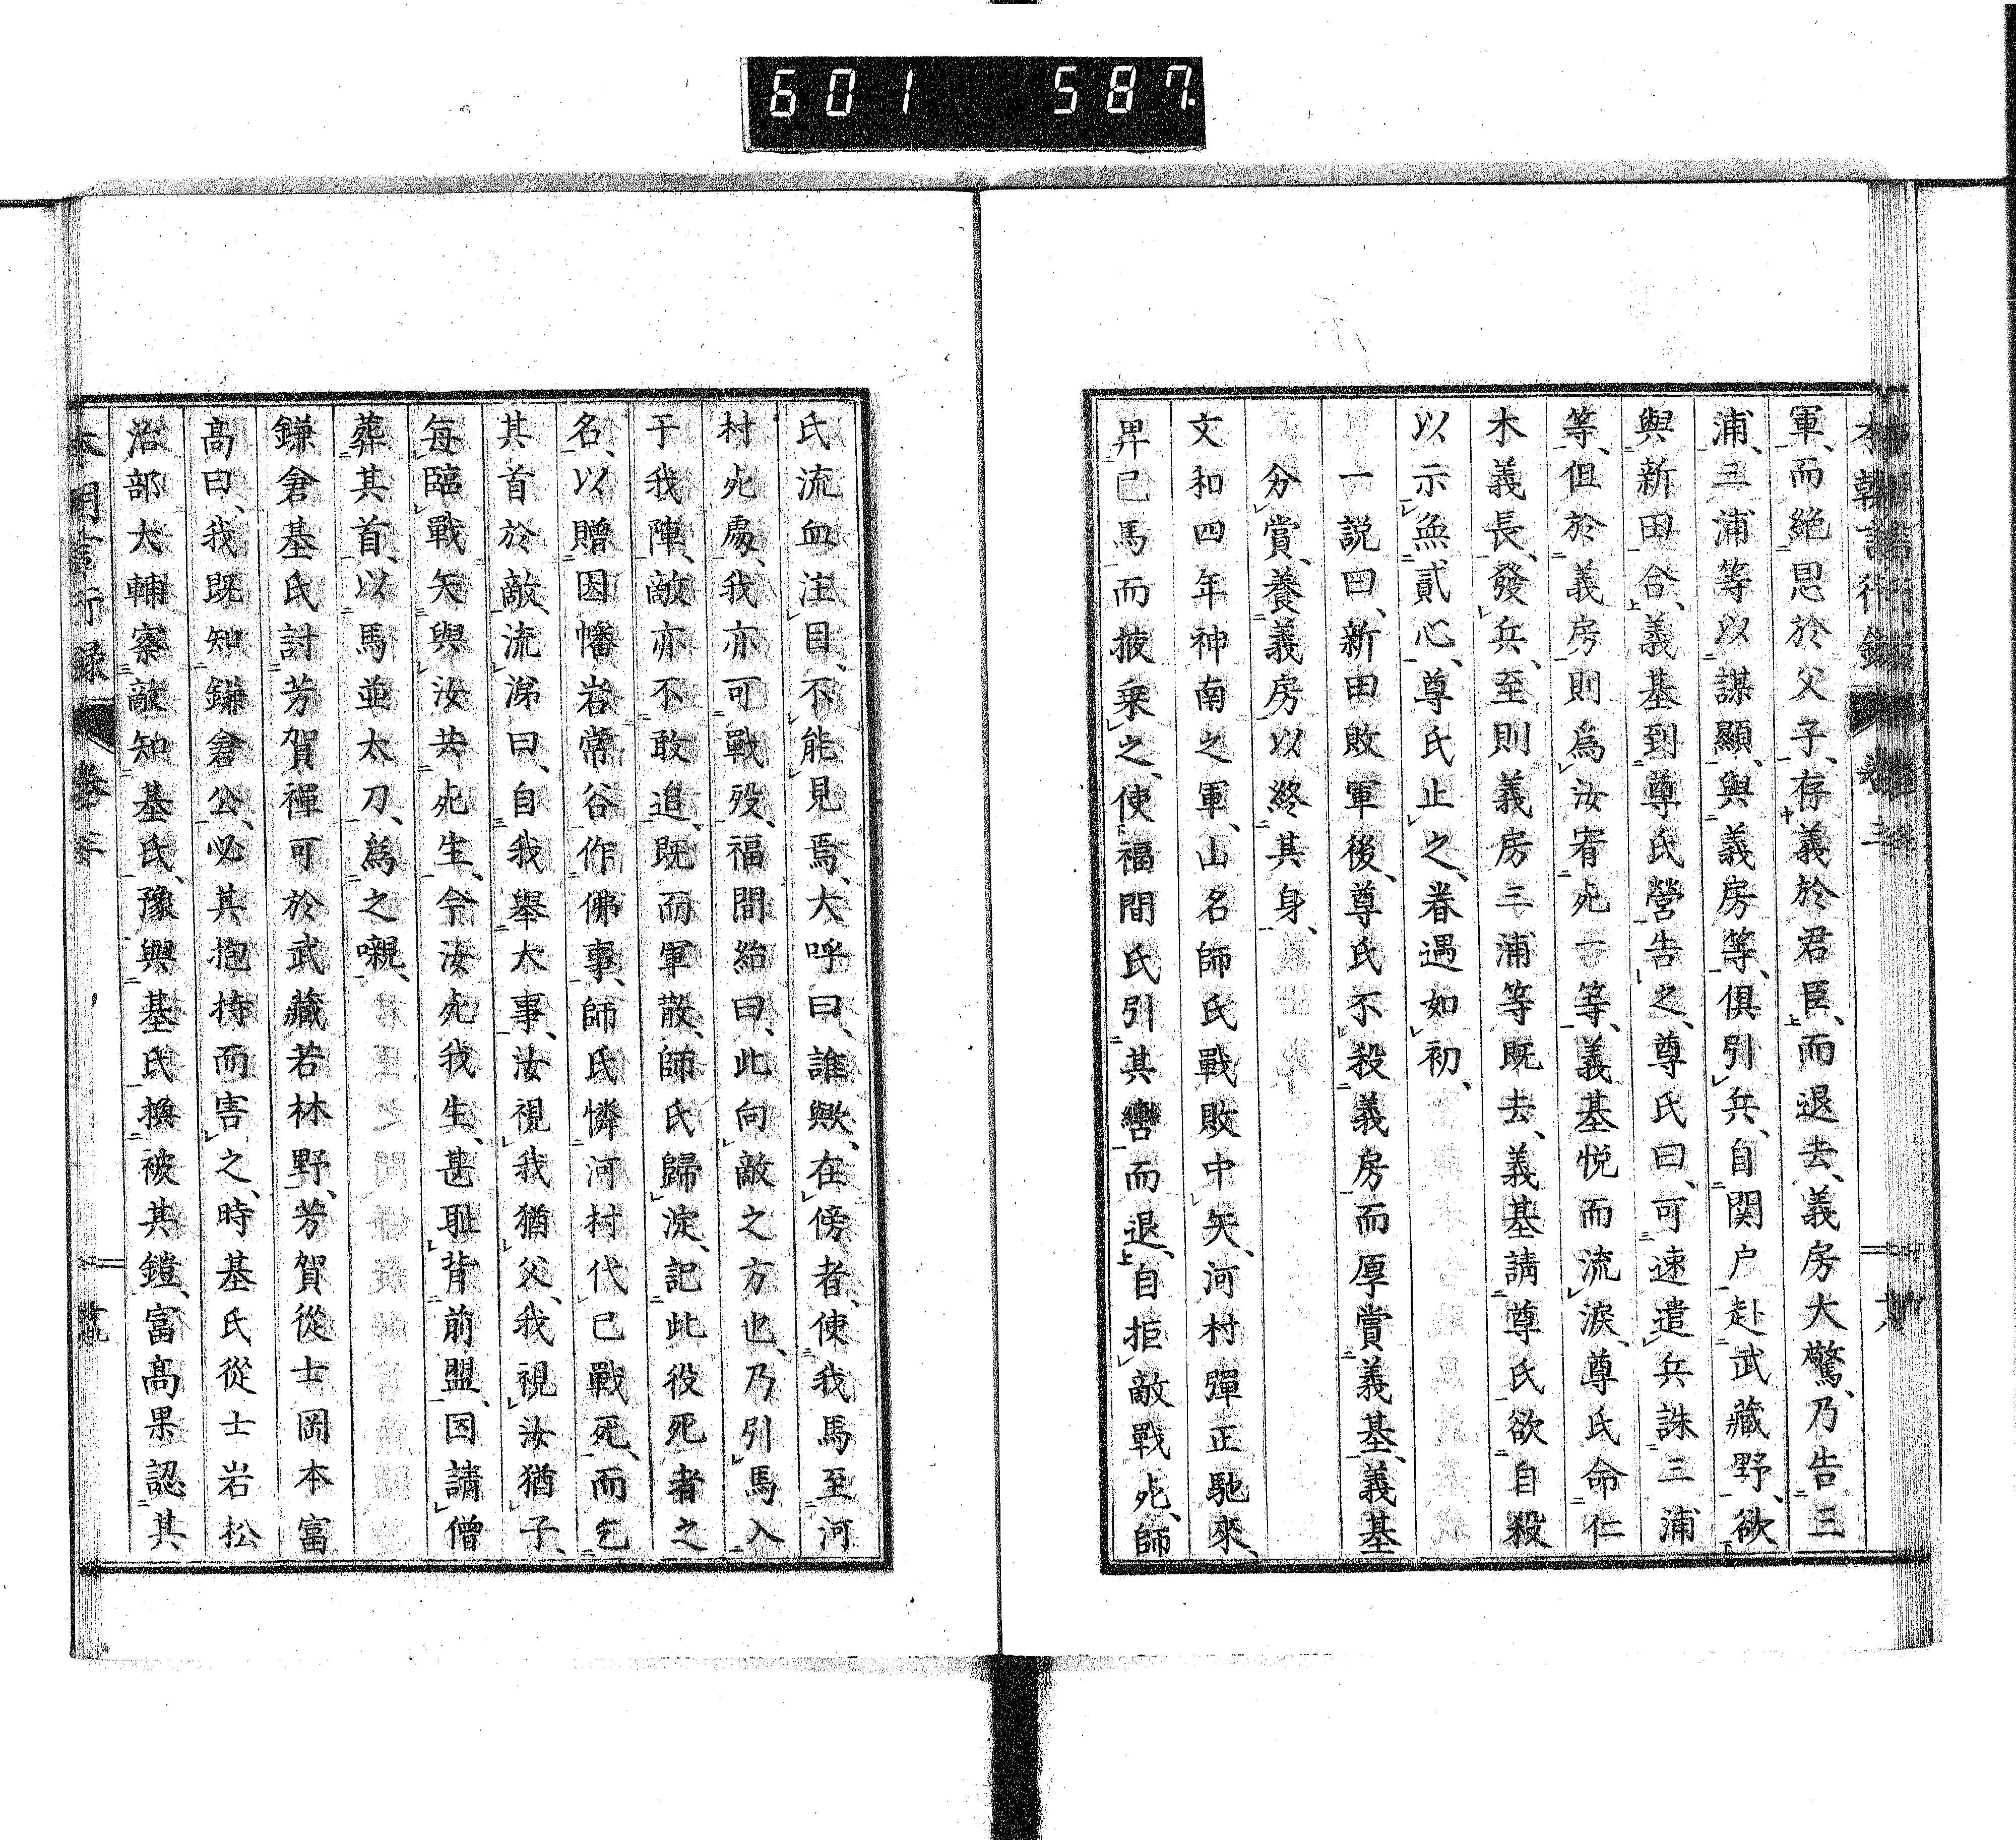 601 587
軍、而絶恩於父子、存義於君臣、而退去、義房大驚、乃告三
浦、三浦等以謀顯、與義房等、俱引兵、自関戸赴武藏野、欲
與新田合、義基到尊氏營告之、尊氏曰、可速遣兵誅三浦
等、但於義房則爲汝宥死一等、義基悦而流淚、尊氏命仁
木義長、發兵、至則義房三浦等既去、義基請尊氏欲自殺
以示無貳心、尊氏止之、眷遇如初、
一説曰、新田敗軍後、尊氏不殺義房而厚賞義基、義基
分賞、養義房以終其身、
文和四年神南之軍、山名師氏戰敗中矢、河村彈正馳來、
畀己馬而掖乗之、使福間氏引其轡而退、自拒敵戰死、師
氏流血注目、不能見焉、大呼曰、誰歟、在傍者、使我馬至河
村死處、我亦可戰歿、福間紿曰、此向敵之方也、乃引馬入
于我陣、敵亦不敢追、既而軍散、師氏歸淀、記此役死者之
名、以贈因幡岩常谷作佛事、師氏憐河村代己戰死、而乞
其首於敵、流涕曰、自我舉大事、汝視我猶父、我視汝猶子、
每臨戰矢與汝共死生、今汝死我生、甚耻背前盟、因請僧
葬其首、以馬並太刀、爲之嚫、
鎌倉基氏討芳賀禪可於武藏若林野、芳賀從士岡本富
高曰、我既知鎌倉公、必其抱持而害之、時基氏從士岩松
治部大輔察敵知基氏、豫與基氏換被其鎧、富高果認其